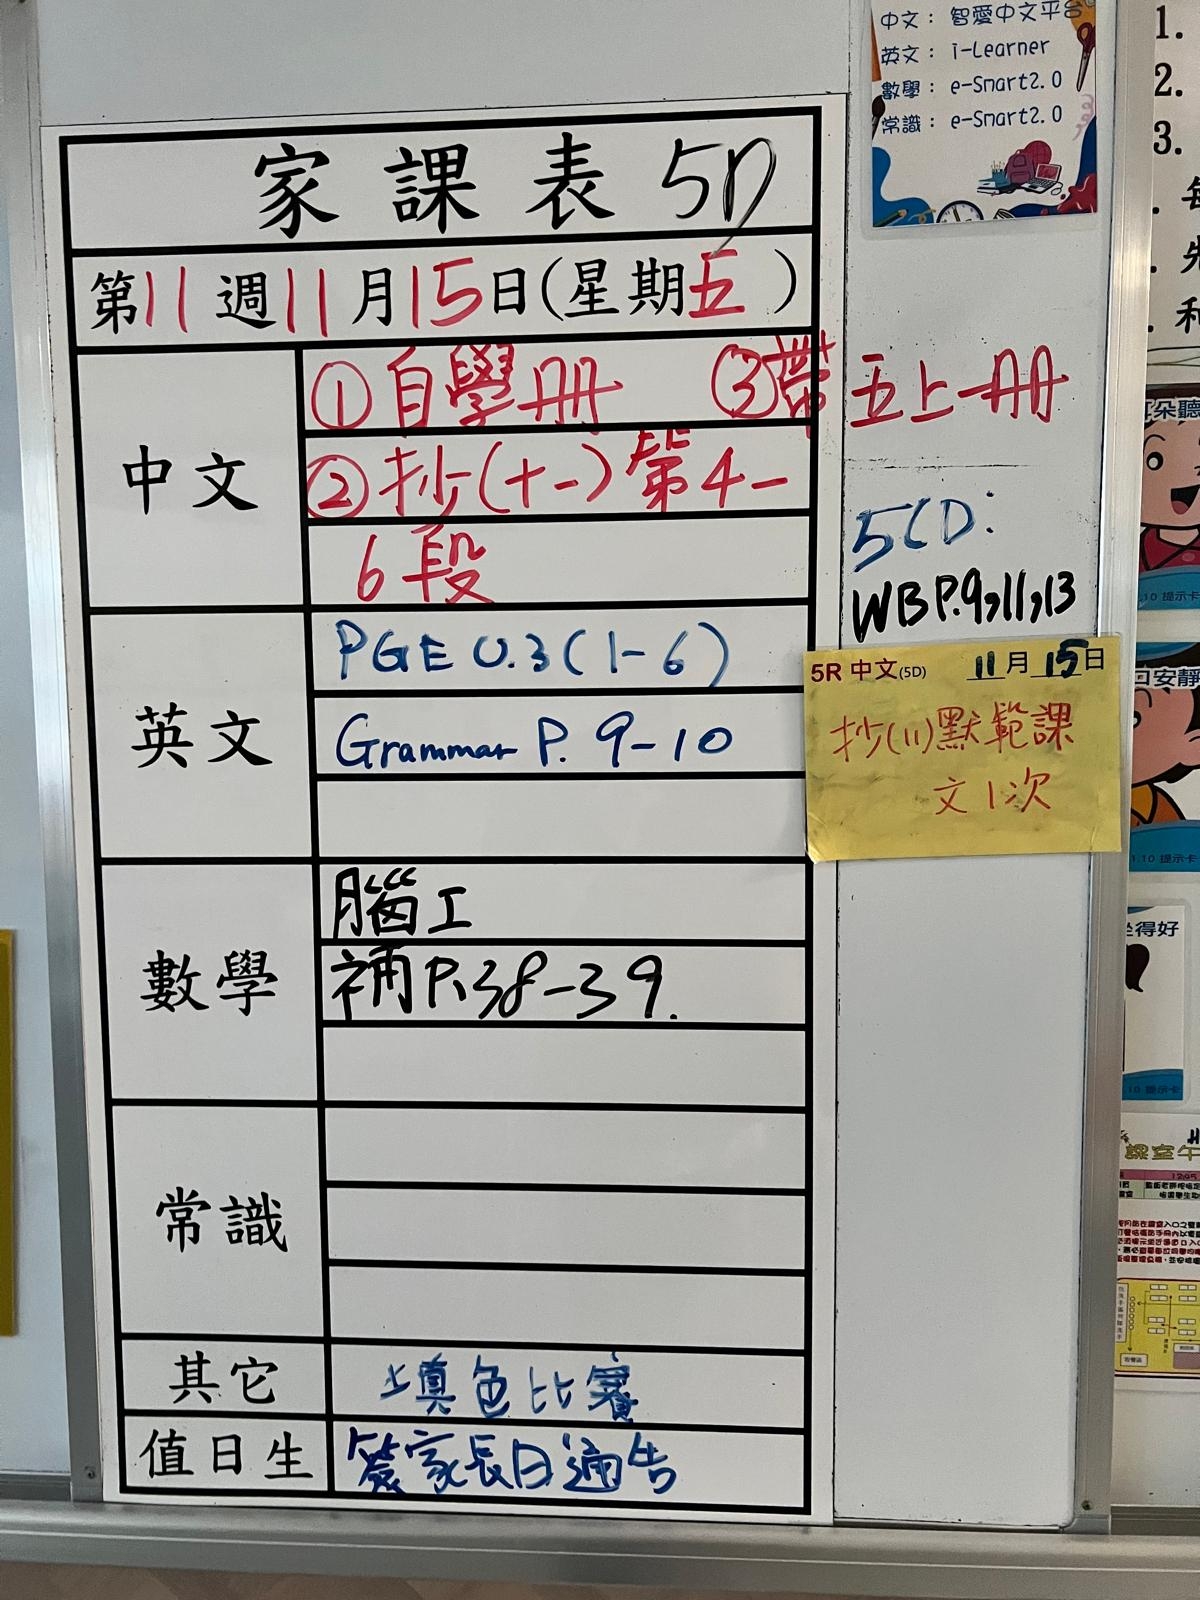 中文： 智愛中文平台
英文： i-Learner
數學： e-Smart2.0
常識： e-Smart2.0
1.
2.
3.
家課表 5D
第11週11月15日(星期五)
中文
①自學冊 ③帶五上冊
②抄(十一)第4-
6段
英文
PGE U.3(1-6)
Grammar P. 9-10
數學
腦工
補P.38-39.
常識
其它
填色比賽
值日生
簽家長日通告
5CD:
WB P.9,11,13
5R 中文(5D) 11月15日
抄(11)默範課
文1次
耳朵聽
.10 提示卡
口安靜
1.10 提示卡
坐得好
.10 提示卡
課室午